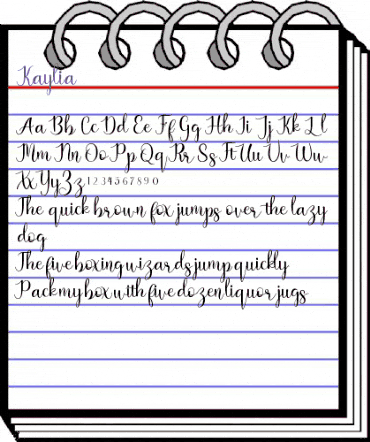 Kaylia
Aa Bb Cc Dd Ee Ff Gg Hh Ii Jj Kk Ll
Mm Nn Oo Pp Qq Rr Ss Tt Uu Vv Ww
Xx Yy Zz 1234567890
The quick brown fox jumps over the lazy
dog
The five boxing wizards jump quickly
Pack my box with five dozen liquor jugs